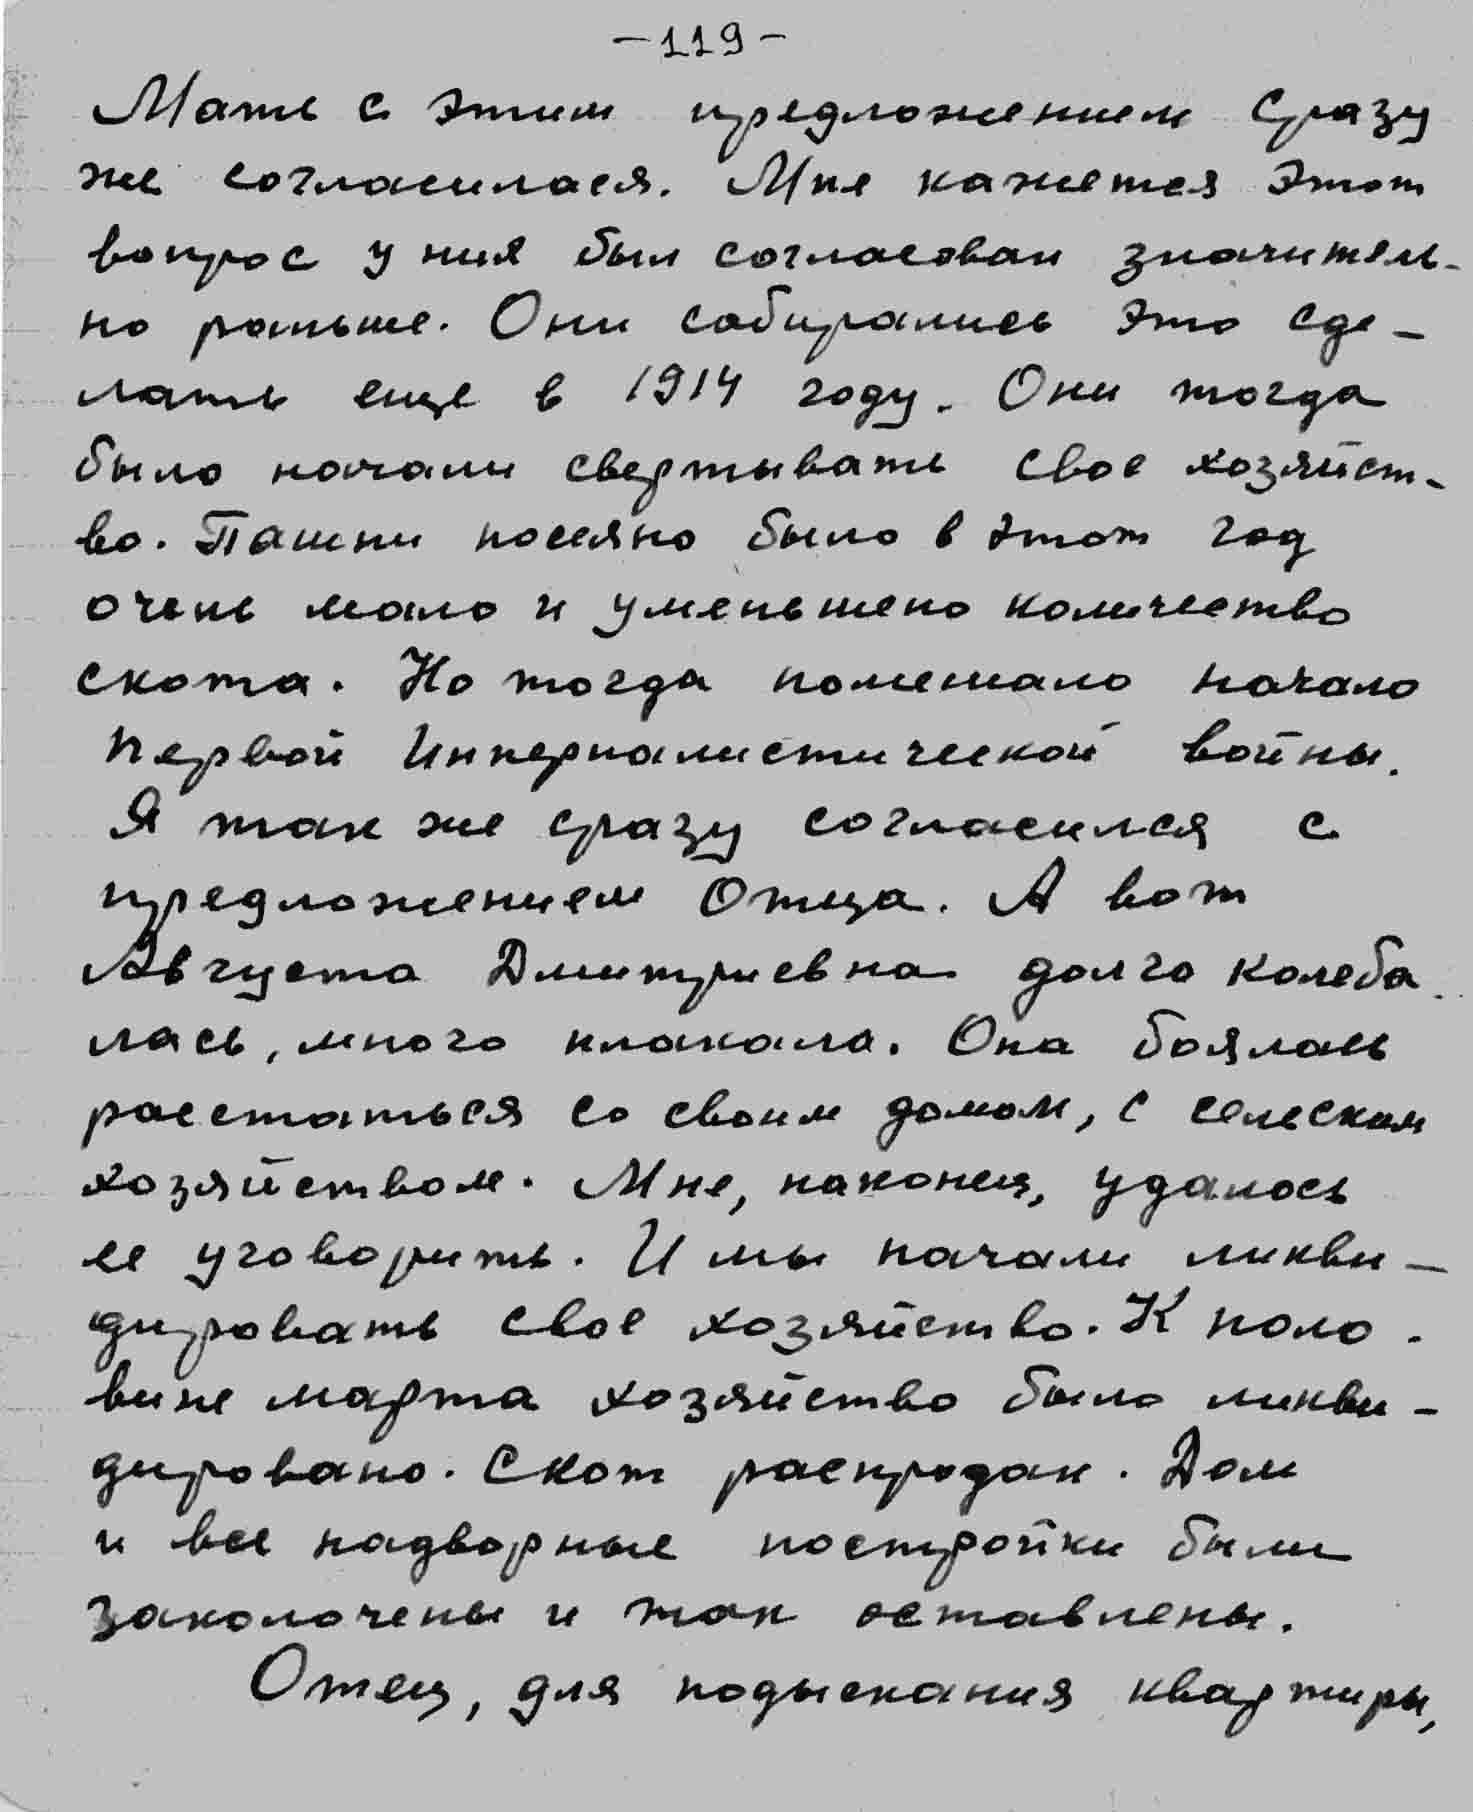 -119-
Мать с этим предложением сразу
же согласилася. Мне кажется этот
вопрос у них был согласован значитель-
но раньше. Они собирались это сде-
лать еще в 1914 году. Они тогда
было начали свертывать свое хозяйст-
во. Пашни посеяно было в этот год
очень мало и уменьшено количество
скота. Но тогда помешало начало
первой Империалистической войны.
Я так же сразу согласился с
предложением Отца. А вот
Августа Дмитриевна долго колеба-
лась, много плакала. Она боялась
расстаться со своим домом, с сельским
хозяйством. Мне, наконец, удалось
ее уговорить. И мы начали ликви-
дировать свое хозяйство. К поло-
вине марта хозяйство было ликви-
дировано. Скот распродан. Дом
и все надворные постройки были
заколочены и так оставлены.
Отец, для подыскания квартиры,